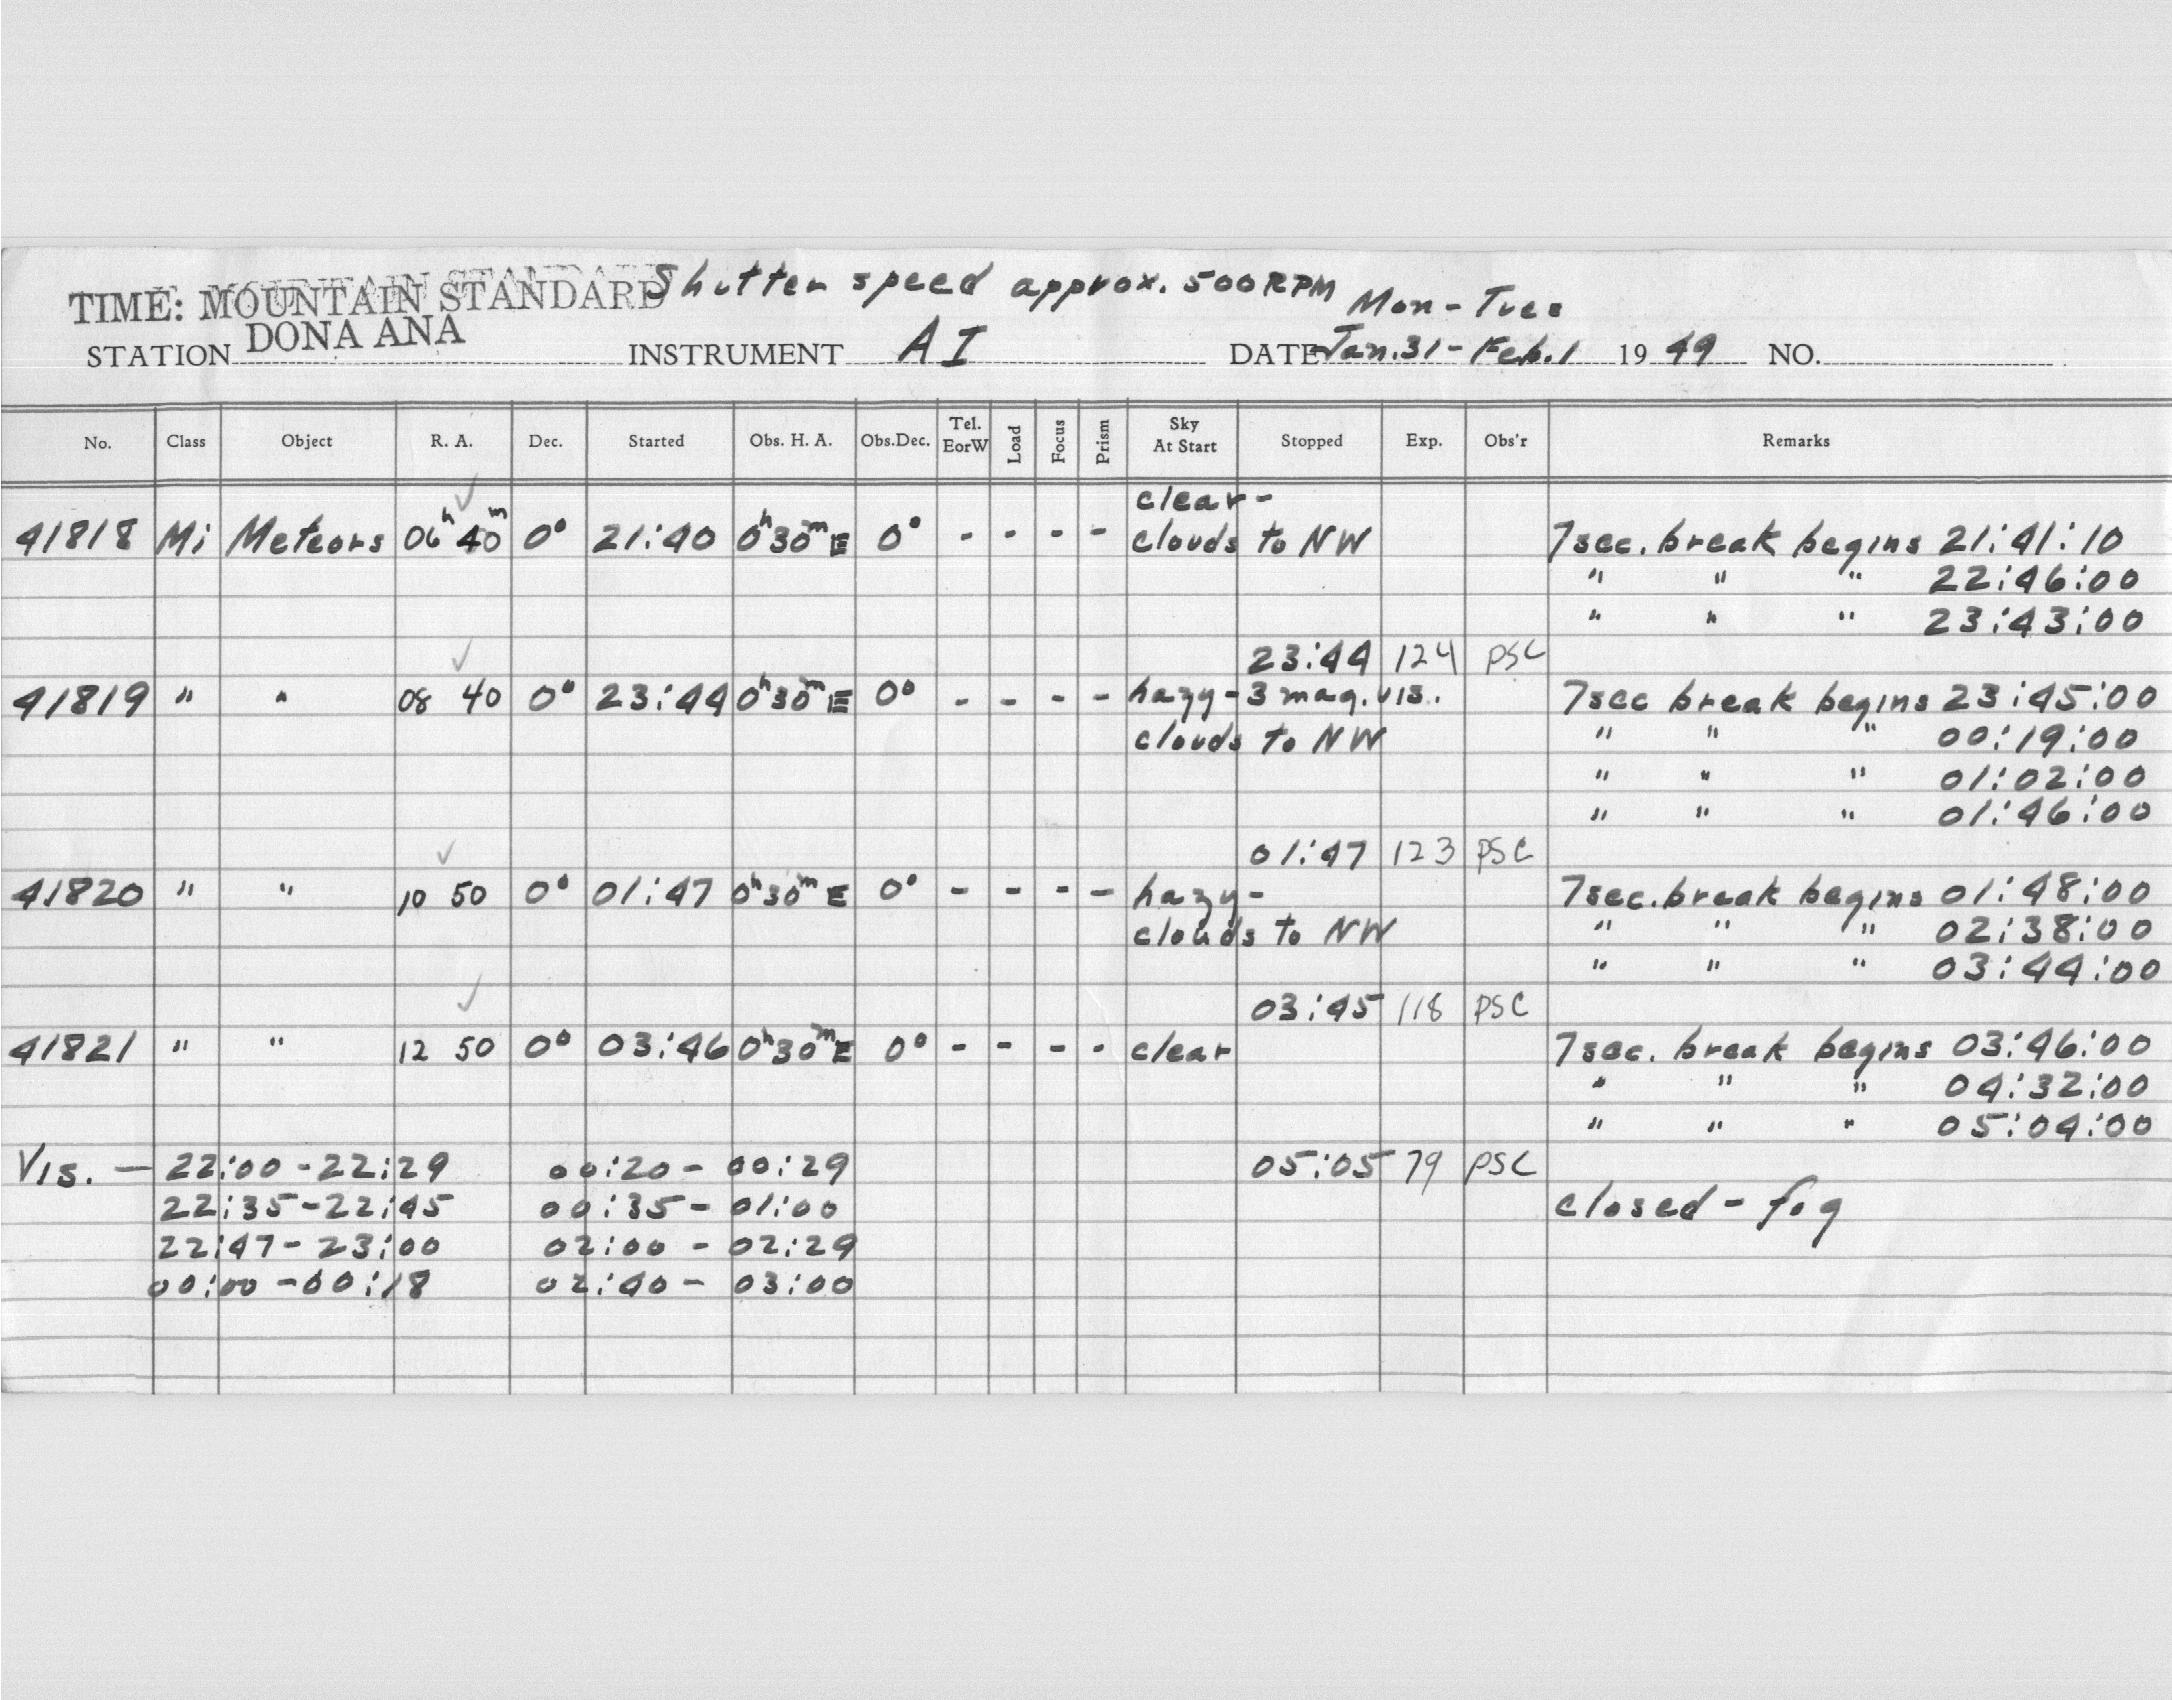 TIME: MOUNTAIN STANDARD Shutter speed approx. 500 RPM Mon-Tues
STATION DONA ANA INSTRUMENT AI DATE Jan. 31 - Feb. 1 1949 NO.
No. Class Object R. A. Dec. Started Obs. H. A. Obs.Dec. Tel. EorW Load Focus Prism Sky At Start Stopped Exp. Obs'r Remarks
clear-
41818 Mi Meteors 06h 40m 0° 21:40 0h30mE 0° - - - - clouds to NW 7sec. break begins 21:41:10
" " " 22:46:00
" " " 23:43:00
23:44 124 PSC
41819 " " 08 40 0° 23:44 0h30mE 0° - - - - hazy-3 mag. vis. 7sec break begins 23:45:00
clouds to NW " " " 00:19:00
" " " 01:02:00
" " " 01:46:00
01:47 123 PSC
41820 " " 10 50 0° 01:47 0h30mE 0° - - - - hazy- 7sec. break begins 01:48:00
clouds to NW " " " 02:38:00
" " " 03:44:00
03:45 118 PSC
41821 " " 12 50 0° 03:46 0h30mE 0° - - - - clear 7sec. break begins 03:46:00
" " " 04:32:00
" " " 05:04:00
Vis. — 22:00-22:29 00:20-00:29 05:05 79 PSC
22:35-22:45 00:35-01:00 closed-fog
22:47-23:00 02:00-02:29
00:00-00:18 02:40-03:00